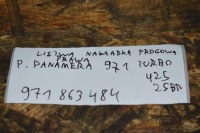 LISTWA NAKŁADKA PROGOWA
PRAWA
P. PANAMERA 971 TURBO
425
25BP
971 863 484